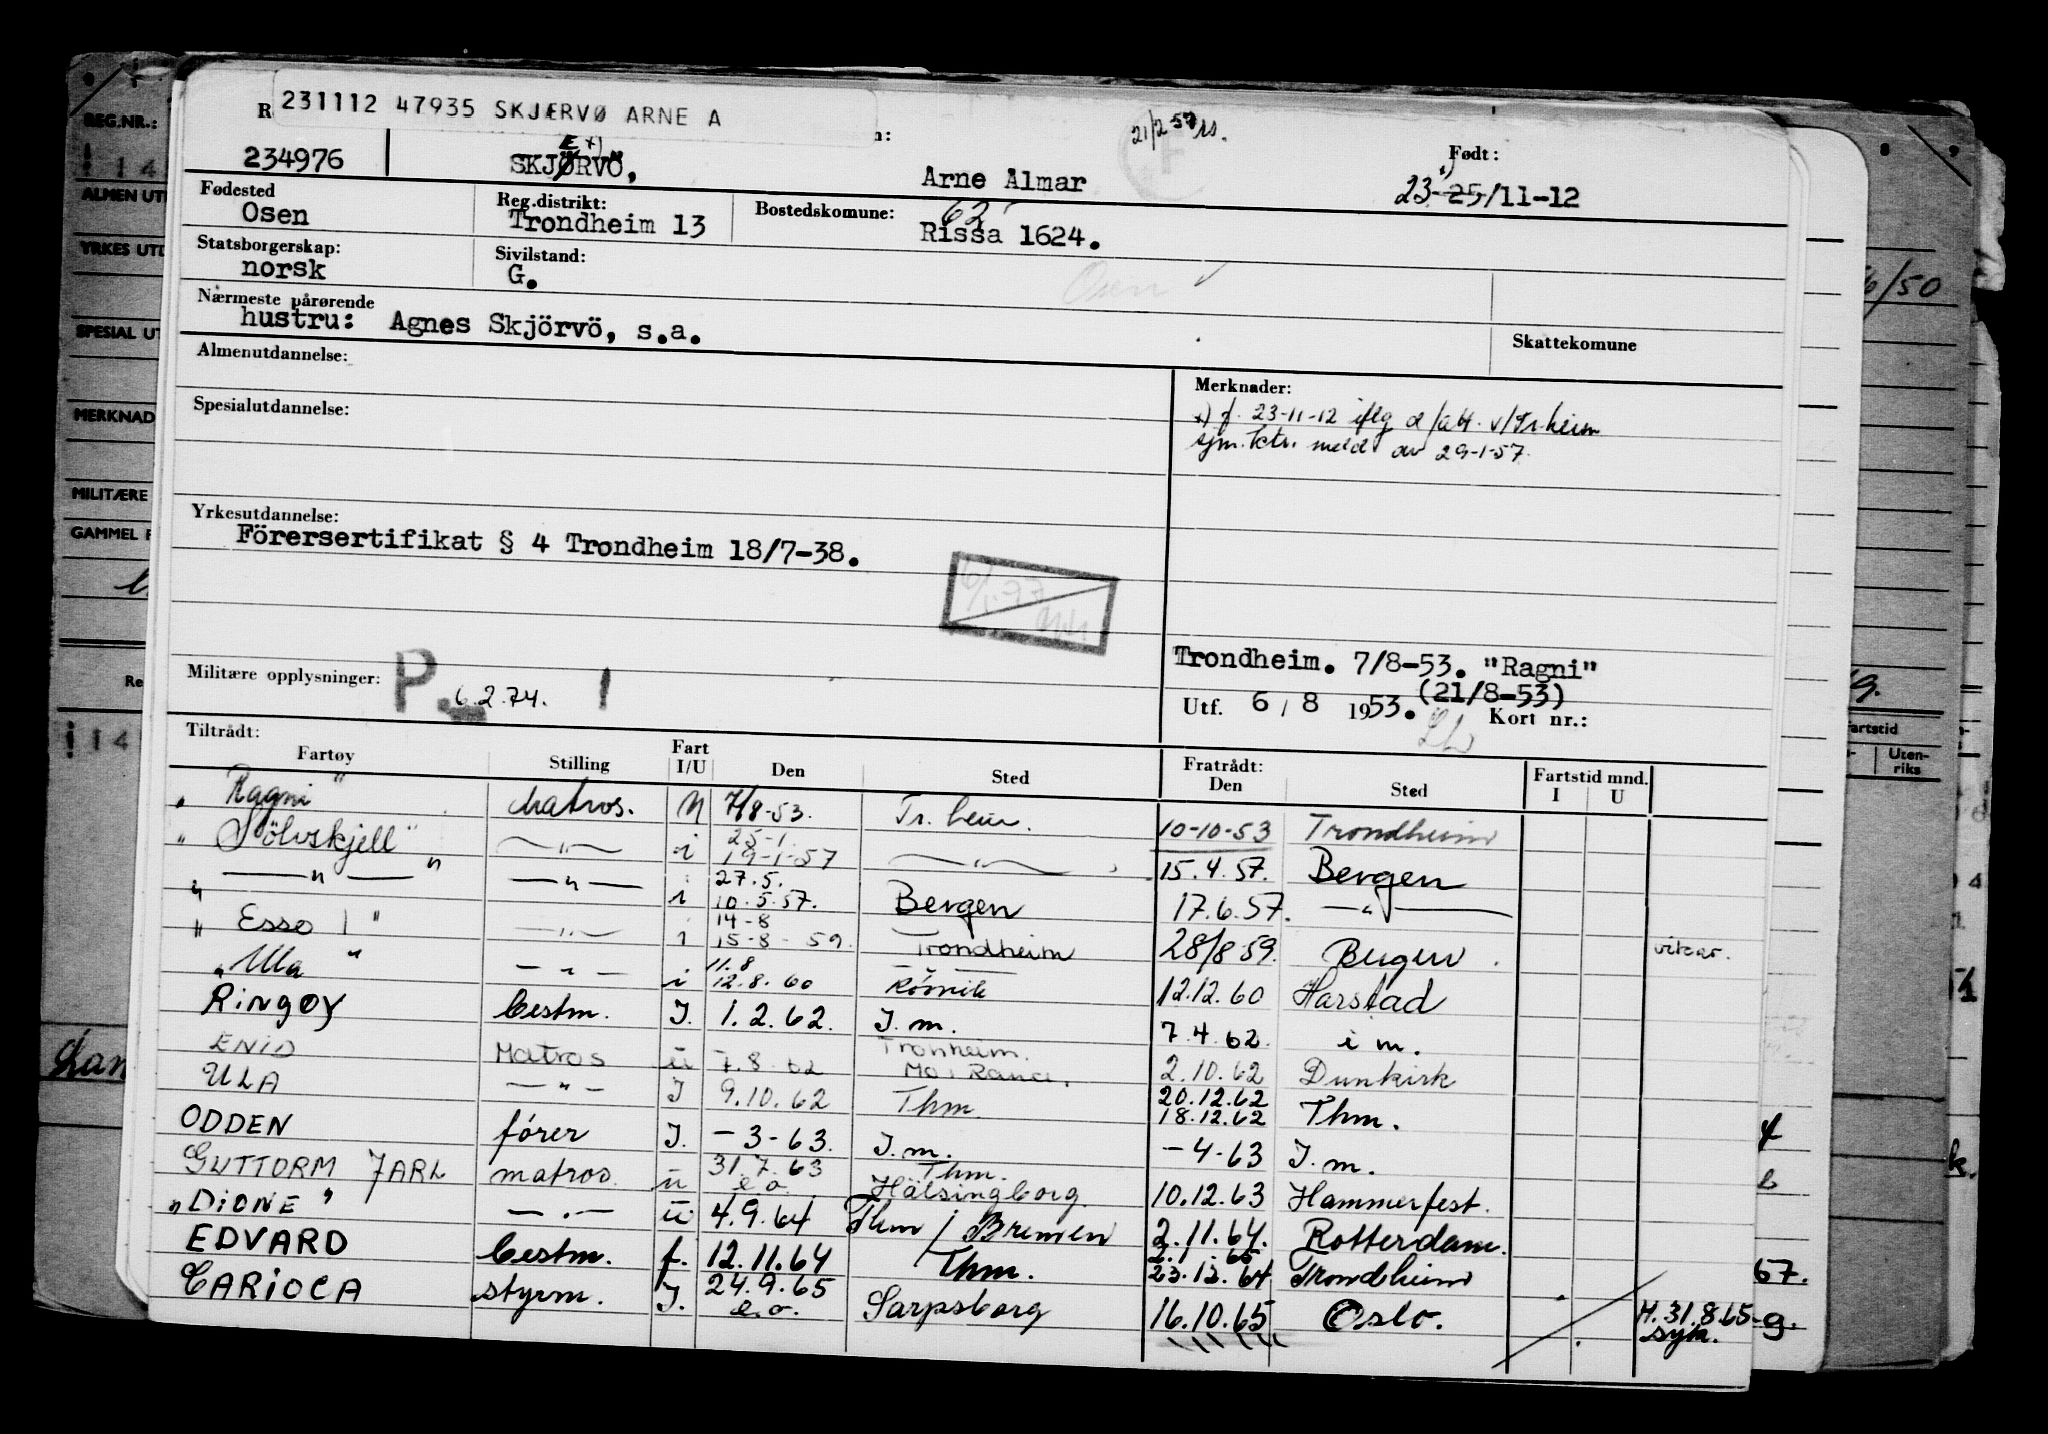 231112 47935 SKJÆRVØ ARNE A
21/2 57
234976 SKJØRVÖ, E x) Arne Almar Født: 23-25/11-12
Fødested Osen Reg.distrikt: Trondheim 13 Bostedskomune: 62 Rissa 1624.
Statsborgerskap: norsk Sivilstand: G. Osen
Nærmeste pårørende
hustru: Agnes Skjörvö, s.a.
Skattekomune
Almenutdannelse:
Merknader:
x) f. 23-11-12 iflg d/att. v/Tr.heim
sjm.ktr. meld av 29-1-57.
Spesialutdannelse:
Yrkesutdannelse:
Förersertifikat § 4 Trondheim 18/7-38.
Militære opplysninger: P. 6.2.74.
Trondheim. 7/8-53. "Ragni"
(21/8-53)
Utf. 6/8 1953. Kort nr.:
Tiltrådt: Fratrådt:
Fartøy Stilling Fart I/U Den Sted Den Sted Fartstid mnd. I U
" Ragni " Matros. N 7/8-53. Tr.heim. 10-10-53 Trondheim
" Sölvskjell " —"— i 25-1. 19-1-57 —"— 15.4.57. Bergen
" —"— " —"— i 27.5. 10.5.57. Bergen 17.6.57. —"—
" Esso 1 " —"— i 14-8 15-8-59. Trondheim 28/8 59. Bergen. vikar.
" Ula " —"— i 11.8 12.8.60 12.12.60 Harstad
Ringøy bestm. I. 1.2.62. I.m. 7.4.62. i m.
ENID Matros u 7.8.62 Tronheim. Mo i Rana. 2.10.62 Dunkirk
ULA —"— I 9.10.62 Thm. 20.12.62 18.12.62 Thm.
ODDEN fører I. -3-63. I.m. -4-63 I.m.
GUTTORM JARL matros. u 31.7.63 e.o. Thm. Hälsingborg. 10.12.63 Hammerfest.
"DIONE" —"— u 4.9.64 Thm / Bremen 2.11.64. Rotterdam.
EDVARD bestm. f. 12.11.64 Thm. 2.1.65 23.12.64 Trondheim
CARIOCA styrm. I. 24.9.65 e.o. Sarpsborg 16.10.65 Oslo. M. 31.8.65 syk.
REG.NR.:
ALMEN UT
YRKES UTD
SPESIAL UT
MERKNAD
MILITÆRE
GAMMEL F
6/50
Fartstid
Uten-
riks
67.
g.